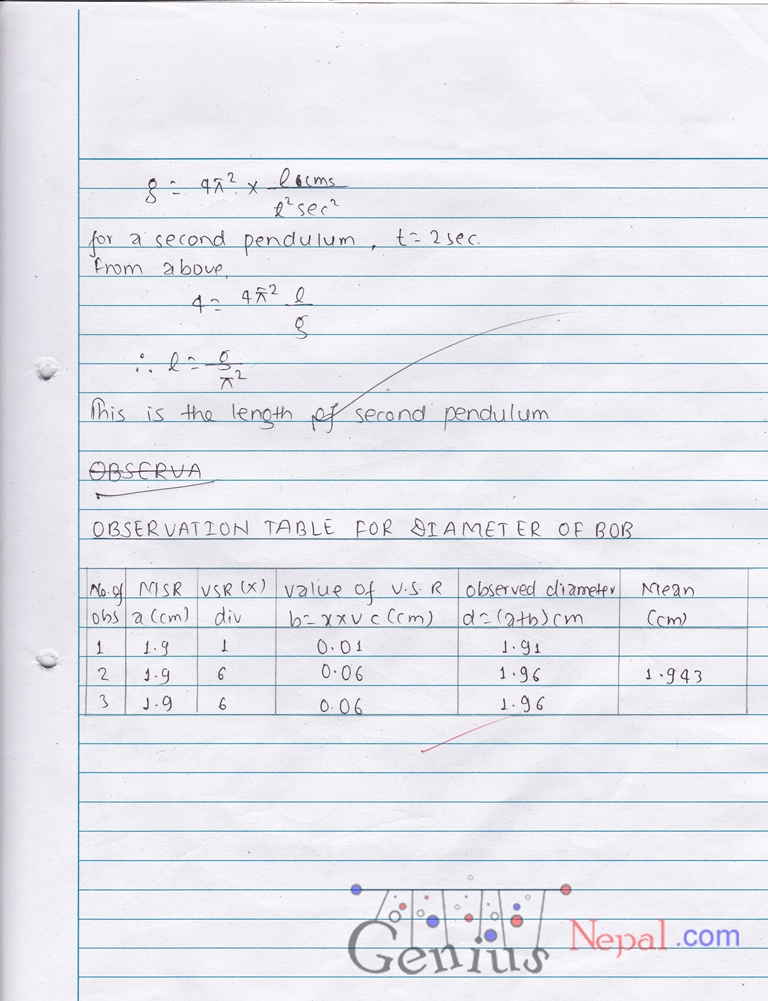 g = 4π² × l cms / t² sec²
for a second pendulum, t = 2 sec.
From above,
4 = 4π² l / g
∴ l = g / π²
This is the length of second pendulum
OBSERVA
OBSERVATION TABLE FOR DIAMETER OF BOB
No. of obs | MSR a (cm) | VSR (x) div | value of V.S.R b = x × v c (cm) | observed diameter d = (a+b) cm | Mean (cm)
1 | 1.9 | 1 | 0.01 | 1.91
2 | 1.9 | 6 | 0.06 | 1.96 | 1.943
3 | 1.9 | 6 | 0.06 | 1.96
Genius Nepal.com